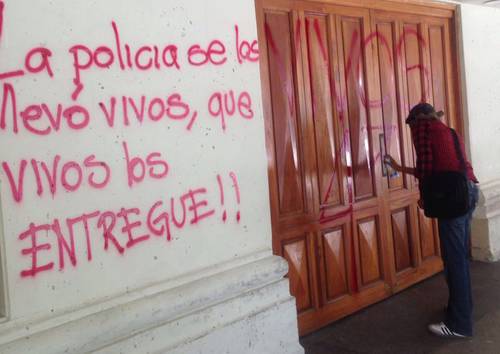 La policía se los
llevó vivos, que
vivos los
ENTREGUE!!
VIVOS